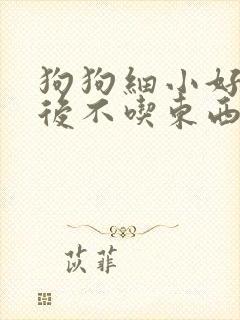 狗狗細小好
後不喫東西
苡菲